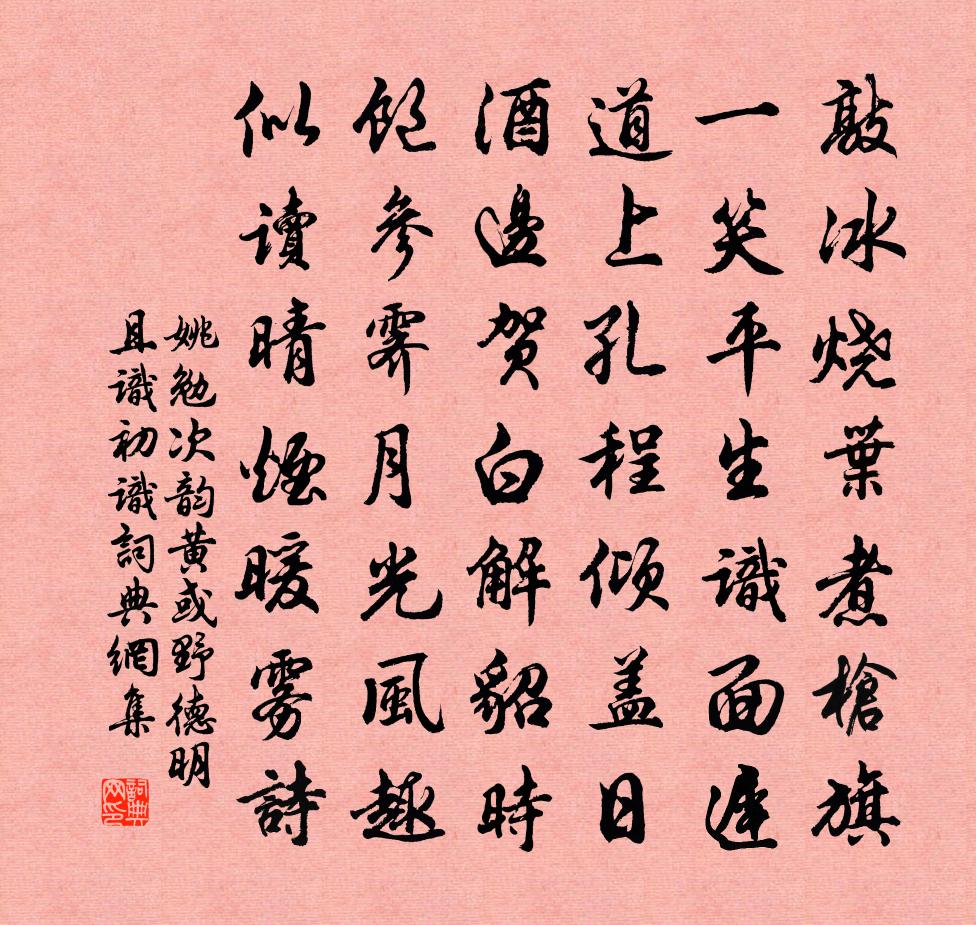 敲冰烧葉煮槍旗
一笑平生識面遲
道上孔程傾盖日
酒邊贺白解貂時
飽參霽月光風趣
似讀晴煙暖雾詩
姚勉次韵黄或野德明
且識初識詞典網集
詞典网印